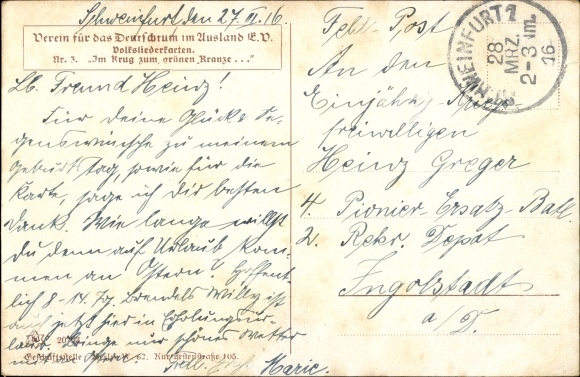 Schweinfurt den 27. III. 16.
Verein für das Deutschtum im Ausland E.V.
Volksliederkarten.
Nr. 3. „Im Krug zum grünen Kranze ..."
Lb. Freund Heinz!
Für deine Glück & Se-
genswünsche zu meinem
Geburtstag, sowie für die
Karte, sage ich dir besten
Dank. Wie lange willst
du denn auf Urlaub kom-
men an Ostern? Hoffent-
lich 8-14 Tg. Brendels Willy ist
auch jetzt hier in Erholungsur-
laub. Bringe nur schönes Wetter
mit an Ostern.
Marie.
Geschäftsstelle Berlin W. 62, Kurfürstenstraße 105.
Feld-Post
SCHWEINFURT 1
28
MRZ.
2-3 Nm.
16
An den
Einjährig-Kriegs-
freiwilligen
Heinz Greger
4. Pionier-Ersatz-Batl.
2. Rekr. Depot
Ingolstadt
a/D